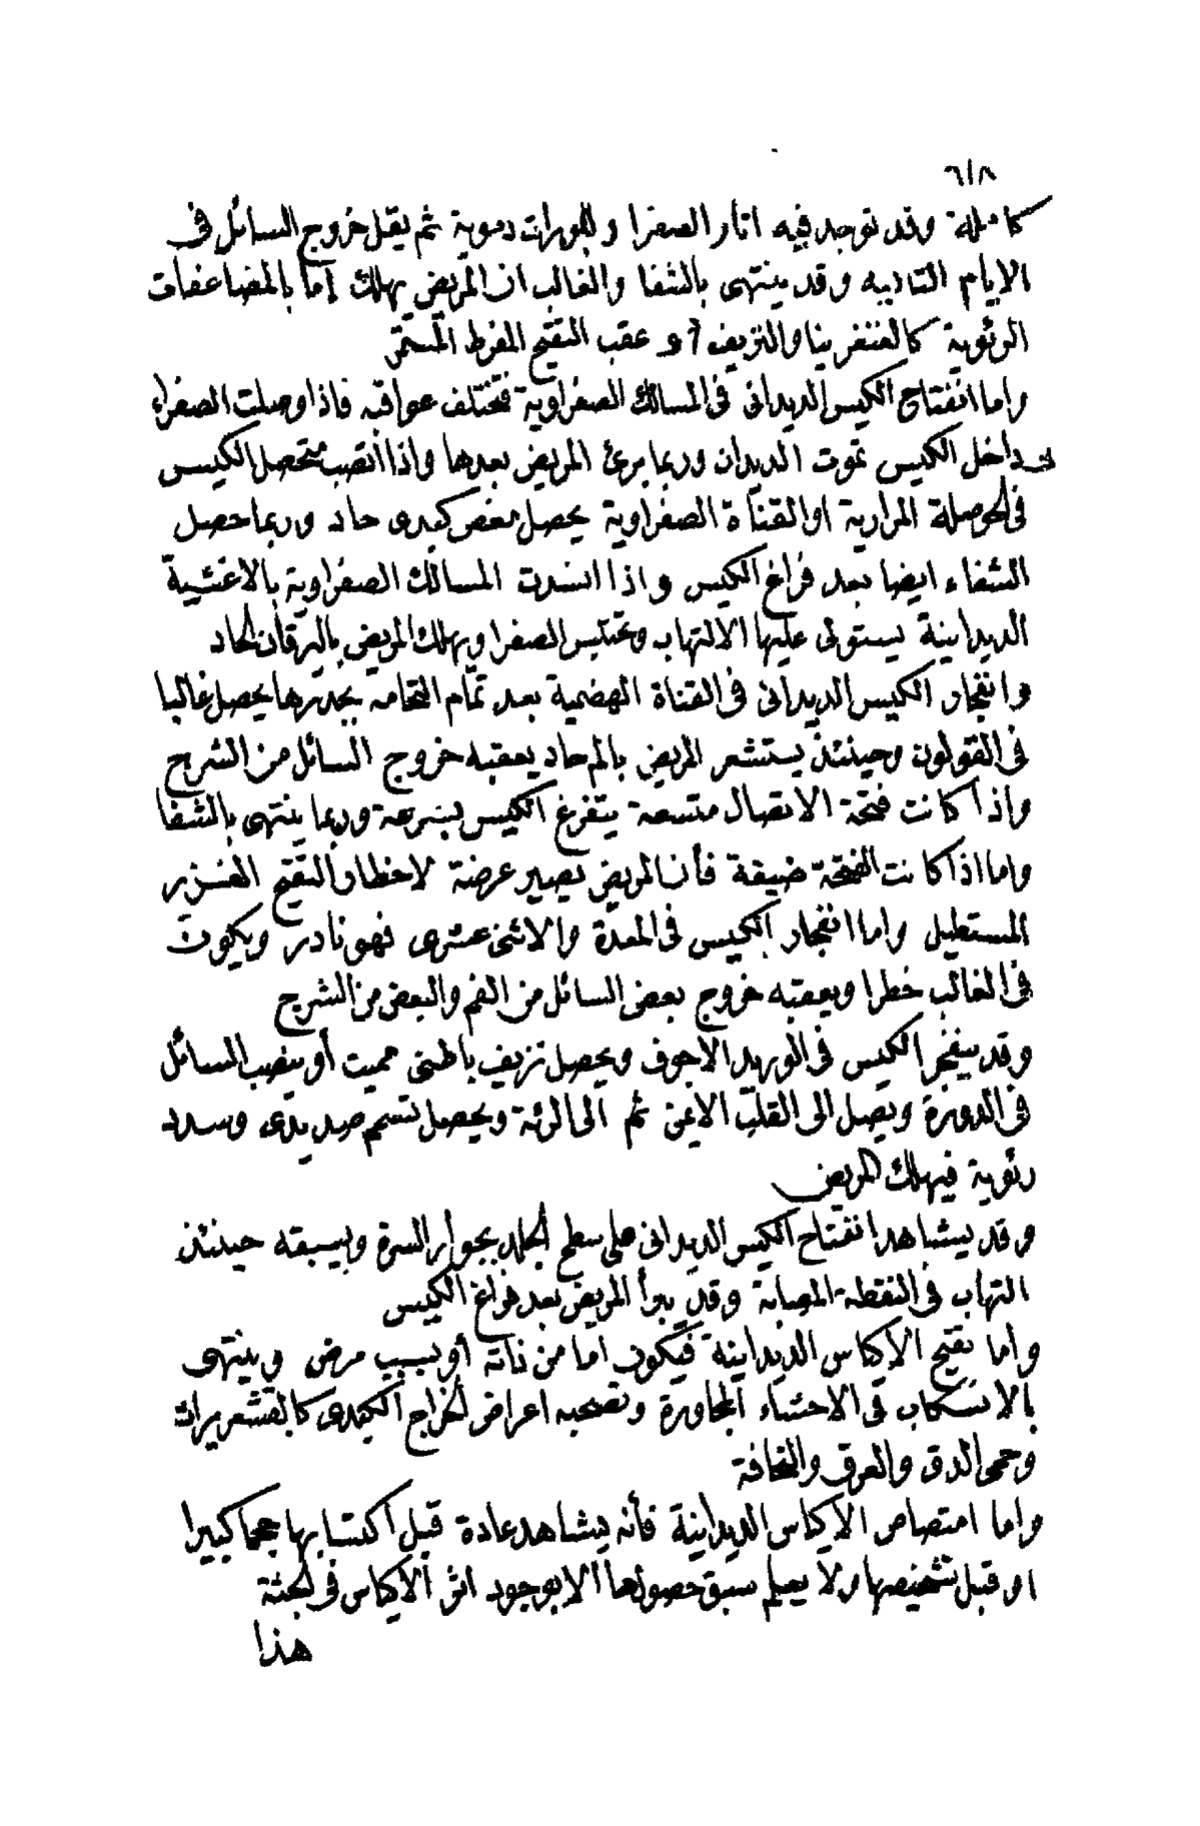 ٦١٨
كاملة وقد توجد فيه اثار الصفرا وبلورات دموية ثم يقل خروج السائل فى
الايام التاليه وقد ينتهى بالشفا والغالب ان المريض يهلك إما بالمضاعفات
الرئوية كالغنغرينا والنزيف أو عقب التقيح المفرط المستمر
واما انفتاح الكيس الديدانى فى المسالك الصفراوية فتختلف عواقبه فاذا وصلت الصفراء
لى داخل الكيس تموت الديدان وربما برئ المريض بعدها واذا انصب متحصل الكيس
فى الحوصلة المرارية او القناة الصفراوية يحصل مغص كبدى حاد وربما حصل
الشفاء ايضا بعد فراغ الكيس واذا انسدت المسالك الصفراوية بالاغشية
الديدانية يستولى عليها الالتهاب وتحتبس الصفرا ويهلك المريض باليرقان الحاد
وانفجار الكيس الديدانى فى القناة الهضمية بعد تمام التحامه بجدرها يحصل غالبا
فى القولون وحينئذ يستشعر المريض بالم حاد يعقبه خروج السائل من الشرج
واذا كانت فتحة الاتصال متسعة يتفرغ الكيس بسرعة وربما ينتهى بالشفا
واما اذا كانت الفتحة ضيقة فأن المريض يصير عرضة لاخطار التقيح الغزير
المستطيل واما انفجار الكيس فى المعدة والاثنى عشرى فهو نادر ويكون
فى الغالب خطرا ويعقبه خروج بعض السائل من الفم والبعض من الشرج
وقد ينفجر الكيس فى الوريد الاجوف ويحصل نزيف باطنى مميت أو ينصب السائل
فى الدورة ويصل الى القلب الايمن ثم الى الرئة ويحصل تسمم صديدى وسدد
رئوية فيهلك المريض
وقد يشاهد انفتاح الكيس الديدانى على سطح الجلد بجوار السرة ويسبقه حينئذ
التهاب فى النقطة المصابة وقد يبرأ المريض بعد فراغ الكيس
واما تقيح الاكياس الديدانية فيكون اما من ذاته أو بسبب مرض وينتهى
بالانسكاب فى الاحشاء المجاورة وتصحبه اعراض الخراج الكبدى كالقشعريرات
وحمى الدق والعرق والنحافة
واما امتصاص الاكياس الديدانية فأنه يشاهد عادة قبل اكتسابها حجما كبيرا
او قبل تشخيصها ولا يعلم سبق حصولها الا بوجود اثر الاكياس فى الجثة
هذا